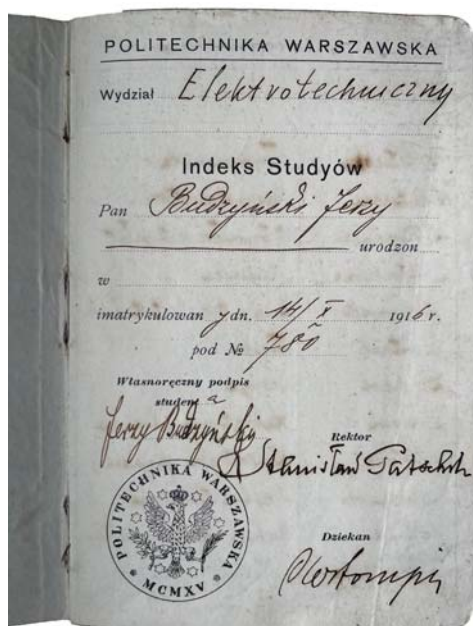 POLITECHNIKA WARSZAWSKA
Wydział Elektrotechniczny
Indeks Studyów
Pan Budzyński Jerzy
urodzon
w
imatrykulowany dn. 14/X 1916 r.
pod № 780
Własnoręczny podpis
studenta
Jerzy Budzyński
Rektor
Stanisław Patschke
POLITECHNIKA WARSZAWSKA
MCMXV
Dziekan